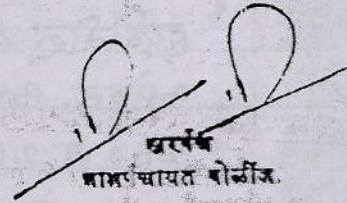 सरपंच
ग्रामपंचायत बोळींज.